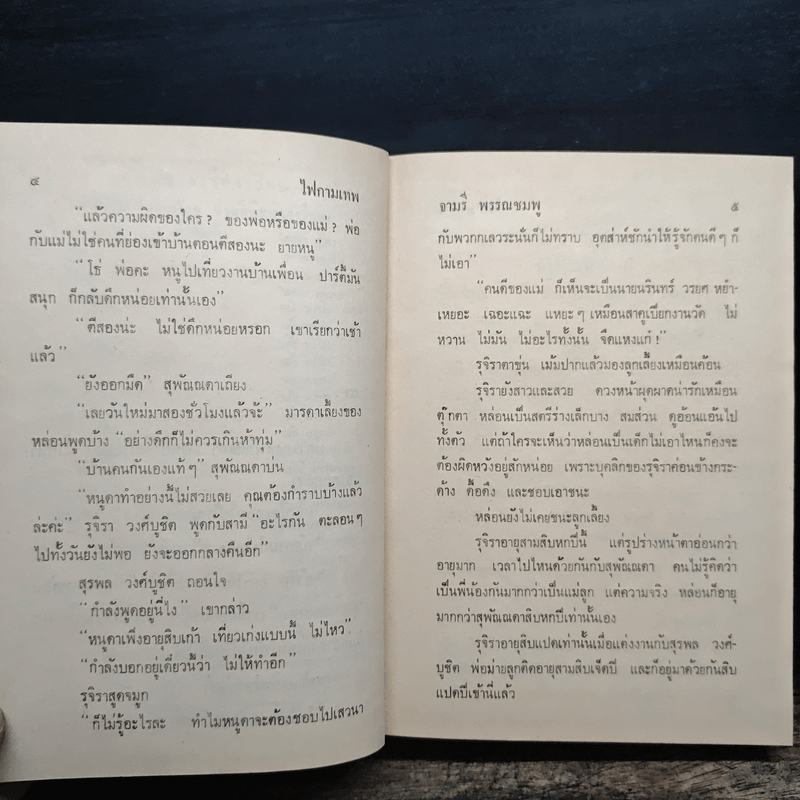 ๔
ไฟกามเทพ
“แล้วความผิดของใคร ? ของพ่อหรือของแม่ ? พ่อ
กับแม่ไม่ใช่คนที่ย่องเข้าบ้านตอนตีสองนะ ยายหนู”
“โธ่ พ่อคะ หนูไปเที่ยวงานบ้านเพื่อน ปาร์ตี้มัน
สนุก ก็กลับดึกหน่อยเท่านั้นเอง”
“ตีสองน่ะ ไม่ใช่ดึกหน่อยหรอก เขาเรียกว่าเช้า
แล้ว”
“ยังออกมืด” สุพัณณดาเถียง
“เลยวันใหม่มาสองชั่วโมงแล้วจ้ะ” มารดาเลี้ยงของ
หล่อนพูดบ้าง “อย่างดึกก็ไม่ควรเกินห้าทุ่ม”
“บ้านคนกันเองแท้ ๆ” สุพัณณดาบ่น
“หนูดาทำอย่างนี้ไม่สวยเลย คุณต้องกำราบบ้างแล้ว
ล่ะค่ะ” รุจิรา วงศ์บูชิต พูดกับสามี “อะไรกัน ตะลอน ๆ
ไปทั้งวันยังไม่พอ ยังจะออกกลางคืนอีก”
สุรพล วงศ์บูชิต ถอนใจ
“กำลังพูดอยู่นี่ไง” เขากล่าว
“หนูดาเพิ่งอายุสิบเก้า เที่ยวเก่งแบบนี้ ไม่ไหว”
“กำลังบอกอยู่เดี๋ยวนี้ว่า ไม่ให้ทำอีก”
รุจิราสูดจมูก
“ก็ไม่รู้อะไรละ ทำไมหนูดาจะต้องชอบไปเสวนา
จามรี พรรณชมพู
๕
กับพวกกเลวระนั่นก็ไม่ทราบ อุตส่าห์ชักนำให้รู้จักคนดี ๆ ก็
ไม่เอา”
“คนดีของแม่ ก็เห็นจะเป็นนายนรินทร์ วรยศ หยำ-
เหยอะ เฉอะแฉะ แหยะ ๆ เหมือนสาคูเปียกงานวัด ไม่
หวาน ไม่มัน ไม่อะไรทั้งนั้น จืดแหงแก๋ !”
รุจิราตาขุ่น เม้มปากแล้วมองลูกเลี้ยงเหมือนค้อน
รุจิรายังสาวและสวย ดวงหน้าผุดผาดน่ารักเหมือน
ตุ๊กตา หล่อนเป็นสตรีร่างเล็กบาง สมส่วน ดูอ้อนแอ้นไป
ทั้งตัว แต่ถ้าใครจะเห็นว่าหล่อนเป็นเด็กไม่เอาไหนก็คงจะ
ต้องผิดหวังอยู่สักหน่อย เพราะบุคลิกของรุจิราค่อนข้างกระ-
ด้าง ดื้อดึง และชอบเอาชนะ
หล่อนยังไม่เคยชนะลูกเลี้ยง
รุจิราอายุสามสิบหกปีนี้ แต่รูปร่างหน้าตาอ่อนกว่า
อายุมาก เวลาไปไหนด้วยกันกับสุพัณณดา คนไม่รู้คิดว่า
เป็นพี่น้องกันมากกว่าเป็นแม่ลูก แต่ความจริง หล่อนก็อายุ
มากกว่าสุพัณณดาสิบหกปีเท่านั้นเอง
รุจิราอายุสิบแปดเท่านั้นเมื่อแต่งงานกับสุรพล วงศ์-
บูชิต พ่อม่ายลูกติดอายุสามสิบเจ็ดปี และก็อยู่มาด้วยกันสิบ
แปดปีเข้านี่แล้ว